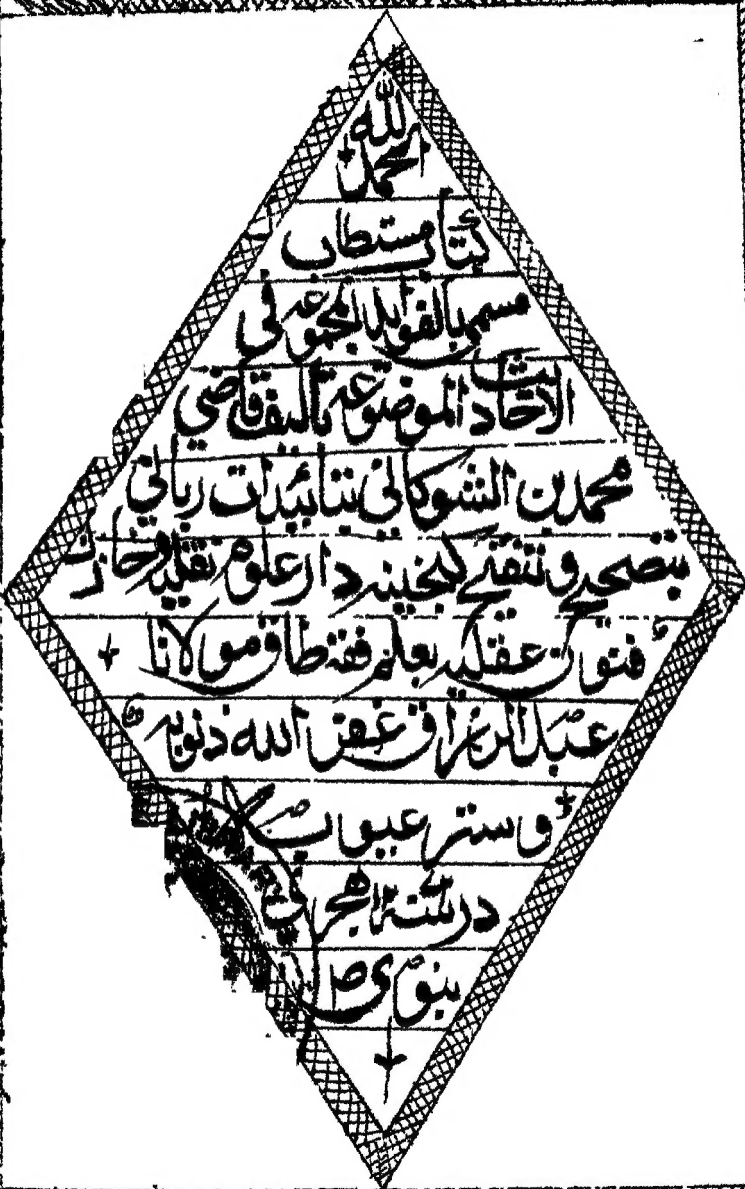 الحمد لله
كتاب مستطاب
مسمى بالفوايد المجموعه في
الاحاديث الموضوعه تاليف قاضي
محمد بن الشوكاني بتائيدات رباني
بتصحيح وتنقيح گنجينه دار علوم نقليه وخازن
فنون عقليه بعلم فقه طاق مولانا
عبد الرزاق غفر الله ذنوبه
وستر عيوبه
در هجري
نبوي